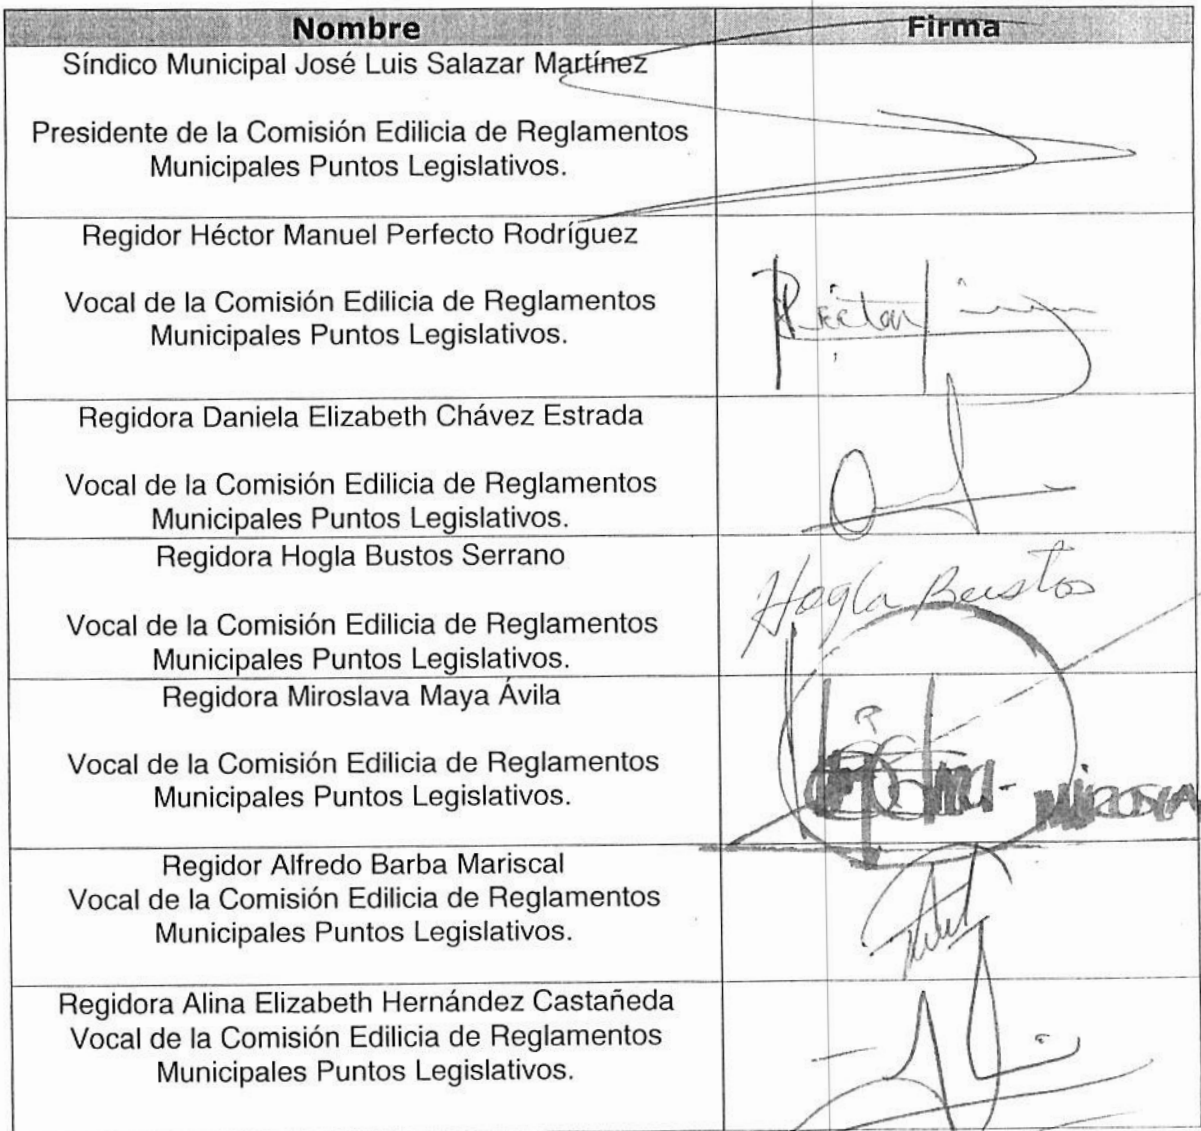 Nombre Firma
Síndico Municipal José Luis Salazar Martínez
Presidente de la Comisión Edilicia de Reglamentos
Municipales Puntos Legislativos.
Regidor Héctor Manuel Perfecto Rodríguez
Vocal de la Comisión Edilicia de Reglamentos
Municipales Puntos Legislativos.
Regidora Daniela Elizabeth Chávez Estrada
Vocal de la Comisión Edilicia de Reglamentos
Municipales Puntos Legislativos.
Regidora Hogla Bustos Serrano
Hogla Bustos
Vocal de la Comisión Edilicia de Reglamentos
Municipales Puntos Legislativos.
Regidora Miroslava Maya Ávila
Vocal de la Comisión Edilicia de Reglamentos
Municipales Puntos Legislativos.
Regidor Alfredo Barba Mariscal
Vocal de la Comisión Edilicia de Reglamentos
Municipales Puntos Legislativos.
Regidora Alina Elizabeth Hernández Castañeda
Vocal de la Comisión Edilicia de Reglamentos
Municipales Puntos Legislativos.